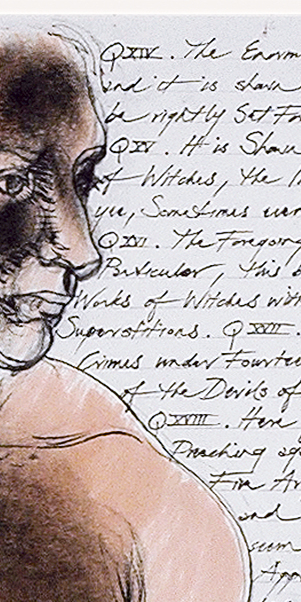 QXIV. The Enorm
and it is shown
be rightly Set For
QXV. It is Shown
of Witches, the I
yea, Sometimes even
QXVI. The Foregoing
Particular, this
Works of Witches with
Superstitions. QXVII.
Crimes under Fourteen
of the Devils of
QXVIII. Here
Preaching aga
Five Ar
and
sum
App